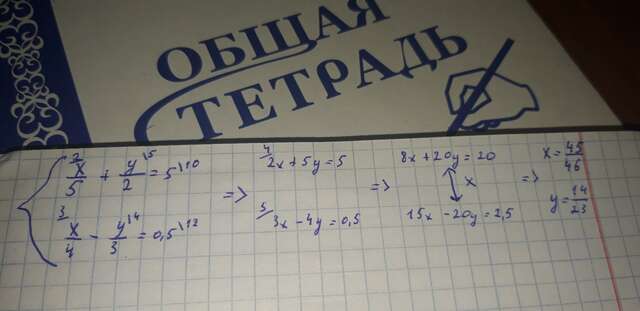 ОБЩАЯ
ТЕТРАДЬ
2 x/5 + y/2 \5 = 5 \10 => 4/ 2x + 5y = 5 => 8x + 20y = 20 x => x = 45/46
3 x/4 - y/3 \4 = 0,5 \12 5/ 3x - 4y = 0,5 15x - 20y = 2,5 y = 14/23